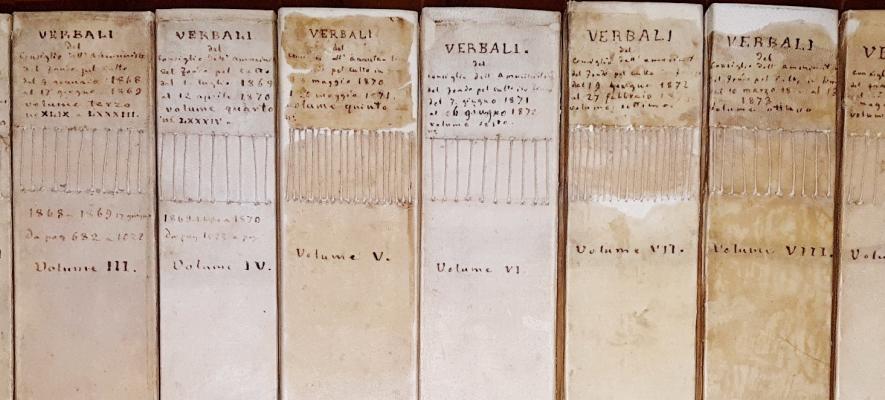 VERBALI
del
Consiglio dell'Amministr
del fondo pel culto
del 9 gennaio 1868
al 17 giugno 1869
volume terzo
ni XLIX a LXXXIII.
1868 a 1869 17 giugno
Da pag 682 a 1022
Volume III.
VERBALI
del
Consiglio dell'Amminist
del fondo pel culto
del 1. luglio 1869
al 12 aprile 1870
volume quarto
ni LXXXIV a
1869 1 luglio a 1870
Da pag 1022 a pag
Volume IV.
VERBALI
del
pel culto
maggio 1870
maggio 1871
volume quinto
Volume V.
VERBALI.
del
consiglio dell'Amministrazi
del fondo pel culto
del 7 giugno 1871
al giugno 1872
volume sesto.
Volume VI
VERBALI
del
Consiglio dell'amminist
del fondo pel culto
del 19 giugno 1872
al 27 febbraio 18
volume settimo.
Volume VII.
VERBALI
del
Consiglio dell' Amminist
del fondo pel culto
al 10 marzo 18
1873
volume ottavo
Volume VIII.
VE
del
volum
Volu